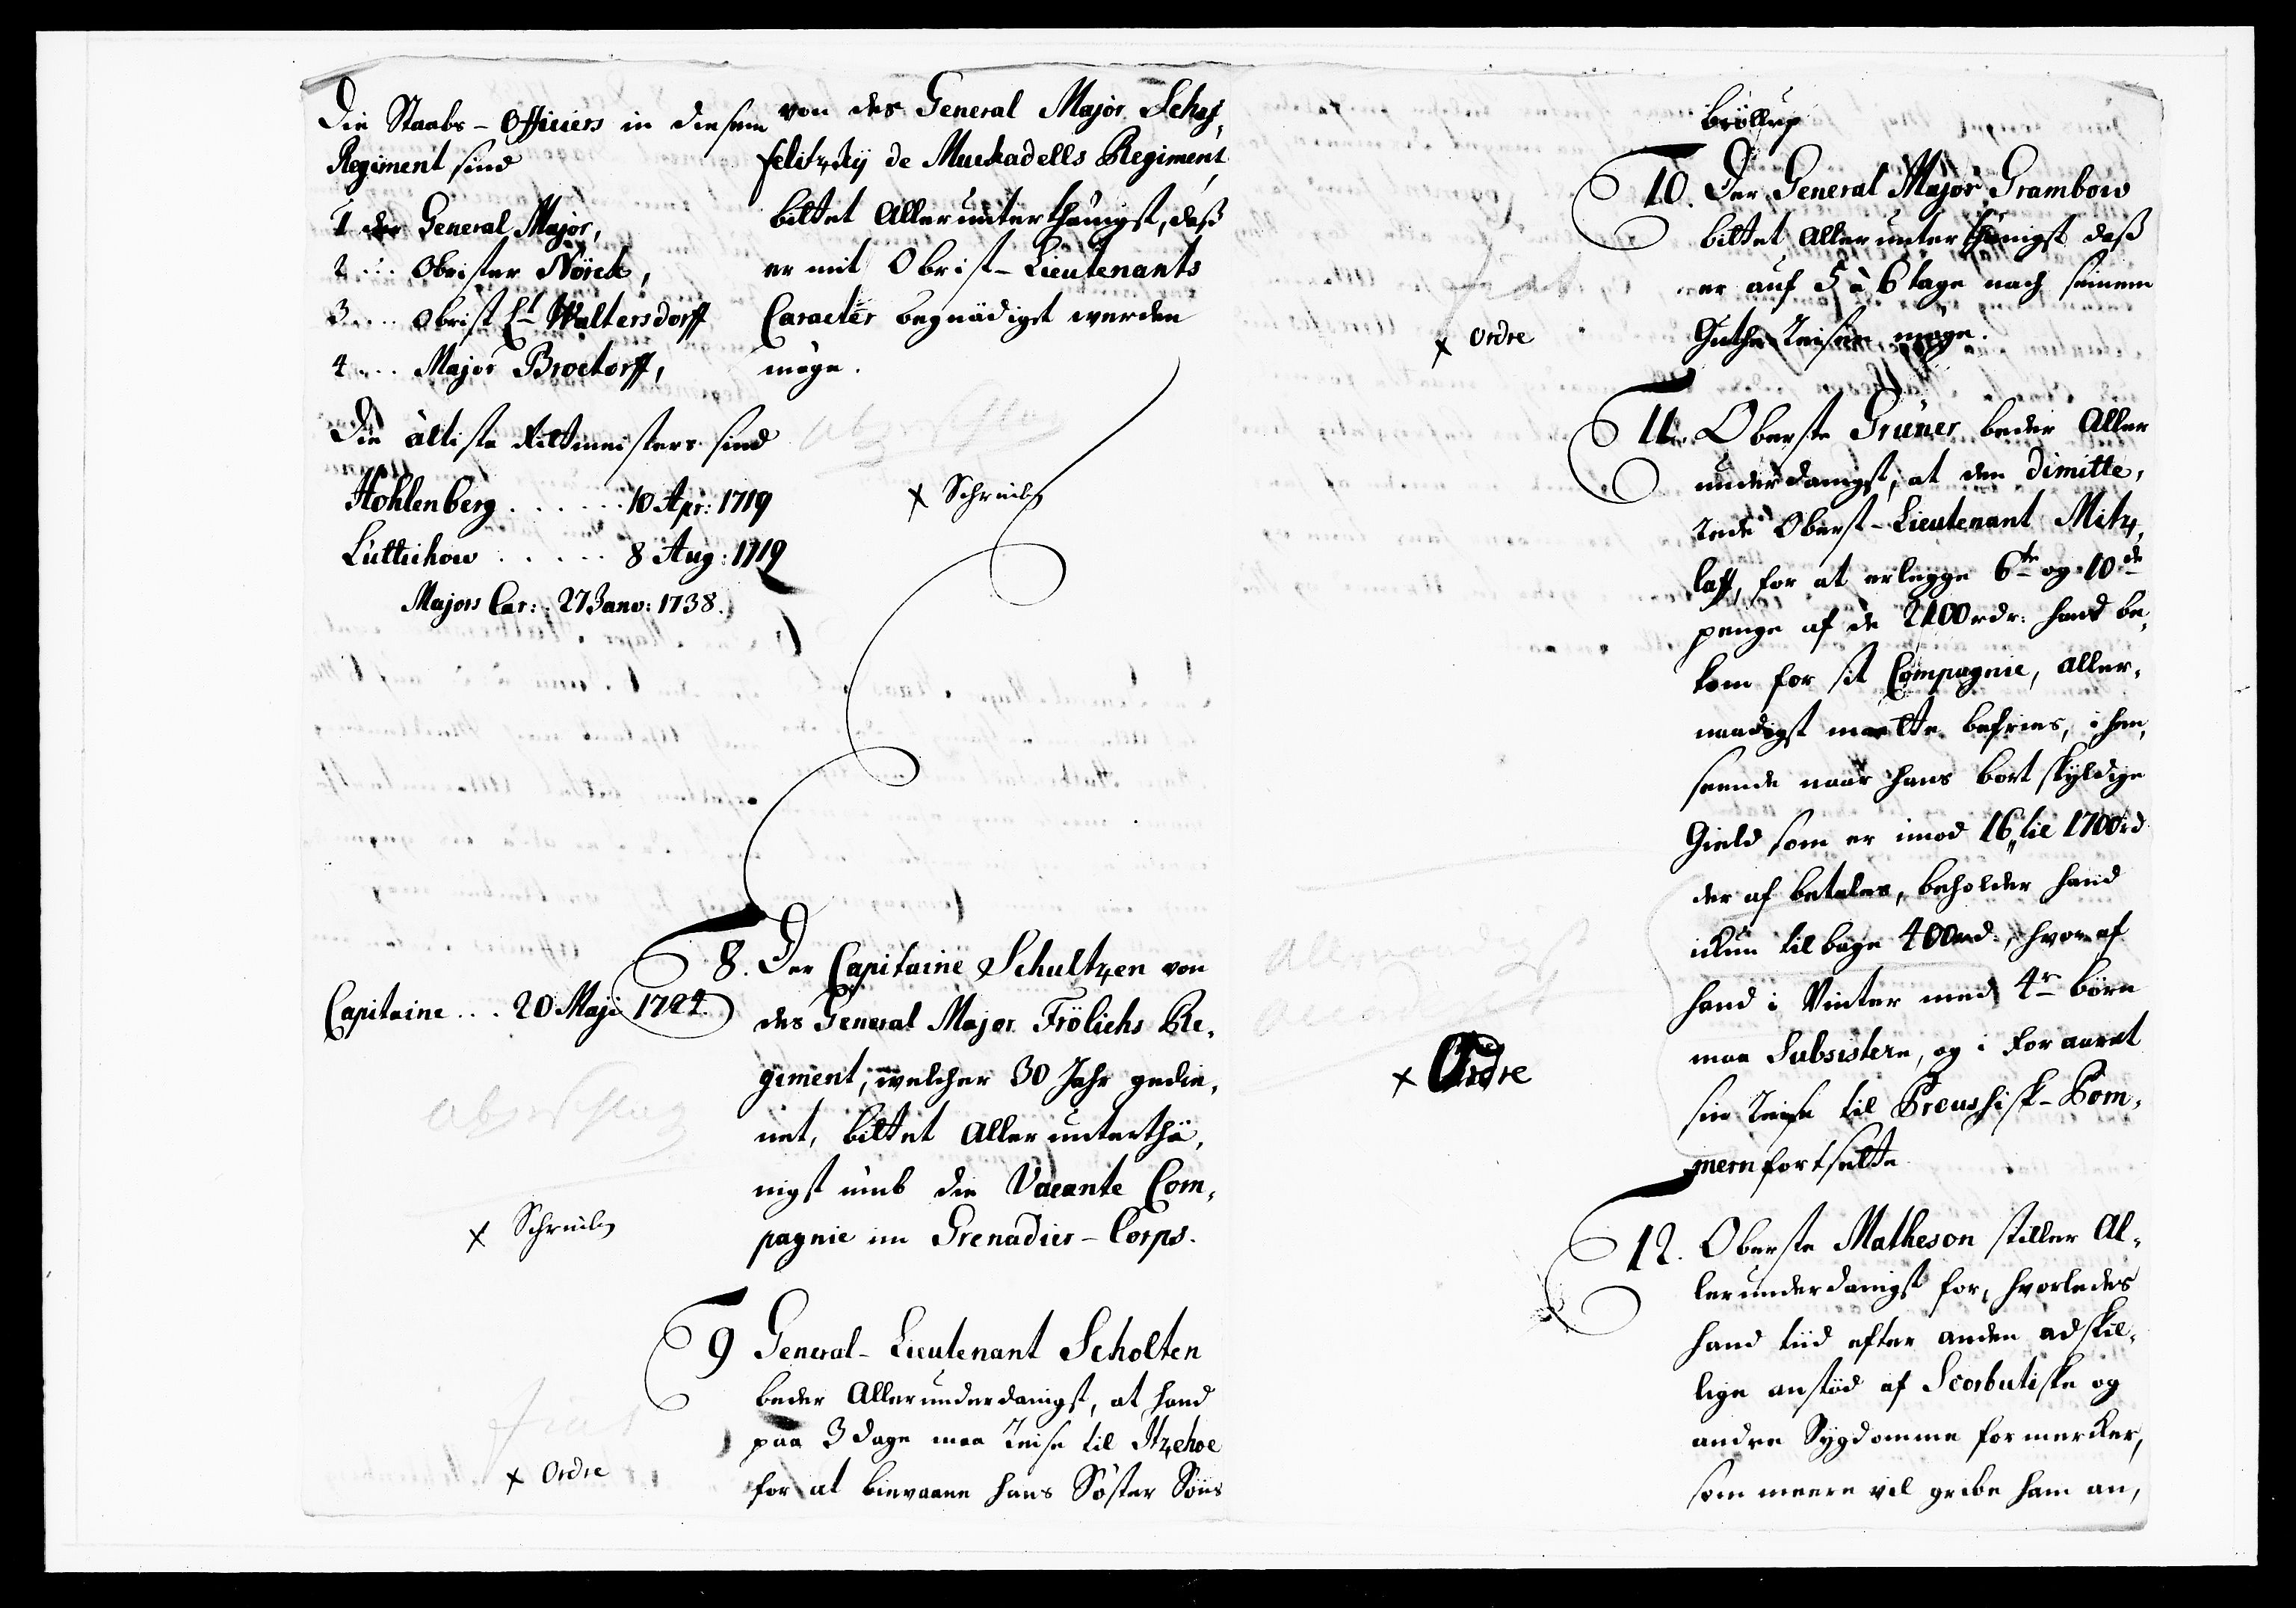 Die Staabs-Officiers in diesem
Regiment sind
1 der General Major,
2 ... Obrister Nörck,
3 .... Obrist Lt Waltersdorff
4 ... Major Broctorff,
Die ältiste Rittmeisters sind
Hohlenberg ...... 10 Apr: 1719
Lüttichow ..... 8 Aug: 1719
Majors Car: 27 Janv: 1738.
von des General Major Schef,
felitzkÿ de Muckadells Regiment,
bittet Allerunterthänigst, daß
er mit Obrist-Lieutenants
Caracter begnädigt werden
möge.
x Schreiben
Capitaine ... 20 Maji 1724.
8. Der Capitaine Schultzen von
des General Major Frölichs Re,
giment, welcher 30 Jahr gedie,
net, bittet Allerunterthä,
nigst umb die Vacante Com,
pagnie im Grenadier-Corps.
Abgeschlag
x Schreiben
9 General-Lieutenant Scholten
beder Allerunderdanigst, at hand
paa 3 dage maa Reise til Itzehoe
for at bievaane hans Söster Söns
fiat
x Ordre
bröllup
10. Der General Major Grambow
bittet Allerunterthänigst daß
er auf 5 à 6 tage nach seinem
Guthe Reisen möge.
fiat
x Ordre
11. Oberste Grüner beder Aller
underdanigst, at den Dimitte,
rede Oberst-Lieutenant Mitz,
laff, for at erlegge 6te og 10de
penge af de 2100 rdr: hand be,
kom for sit Compagnie, aller,
naadigst maatte befries, i hen,
seende naar hans bort skyldige
Gield som er imod 16 tie 1700rd
der af betales, beholder hand
ickun tilbage 400rd:, hvoraf
hand i Vinter med 4r börn
maa Subsistere, og i Foraaret
sin Reise til Preusisk-Pom,
mern fortsette
x Ordre
12. Oberste Matheson stiller Al,
lerunderdanigst for, hvorledes
hand tiid efter anden adskil,
lige anstöd af Scorbutiske og
andre Sygdomme formercker,
som meere vil gribe ham an,